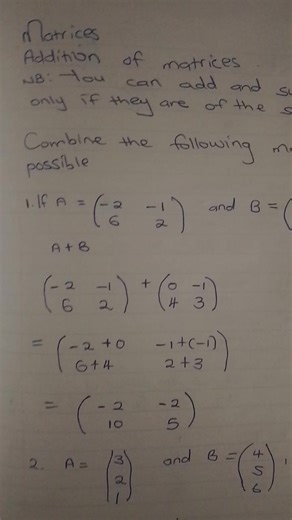 Matrices
Addition of matrices
NB: You can add and
only if they are of the
Combine the following
possible
1. If A = (-2 -1
6 2) and B = (
A + B
(-2 -1
6 2) + (0 -1
4 3)
= (-2+0 -1+(-1)
6+4 2+3)
= (-2 -2
10 5)
2. A = (3
2
1) and B = (4
5
6),